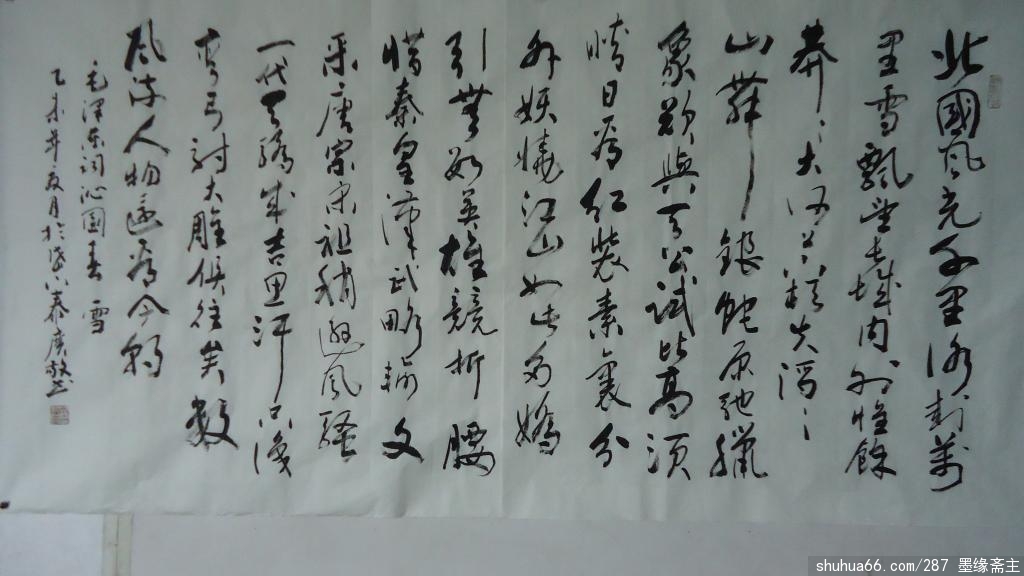 北國風光千里冰封萬
里雪飄望長城内外惟餘
莽〻大河上下頓失滔〻
山舞銀蛇原馳臘
象欲與天公試比高須
晴日看红裝素裹分
外妖嬈江山如此多嬌
引無數英雄競折腰
惜秦皇漢武略輸文
采唐宗宋祖稍遜風騷
一代天驕成吉思汗只識
彎弓射大雕俱往矣數
風流人物還看今朝
毛澤東词沁園春 雪
乙未年夏月於
shuhua66.com/287 墨缘斋主